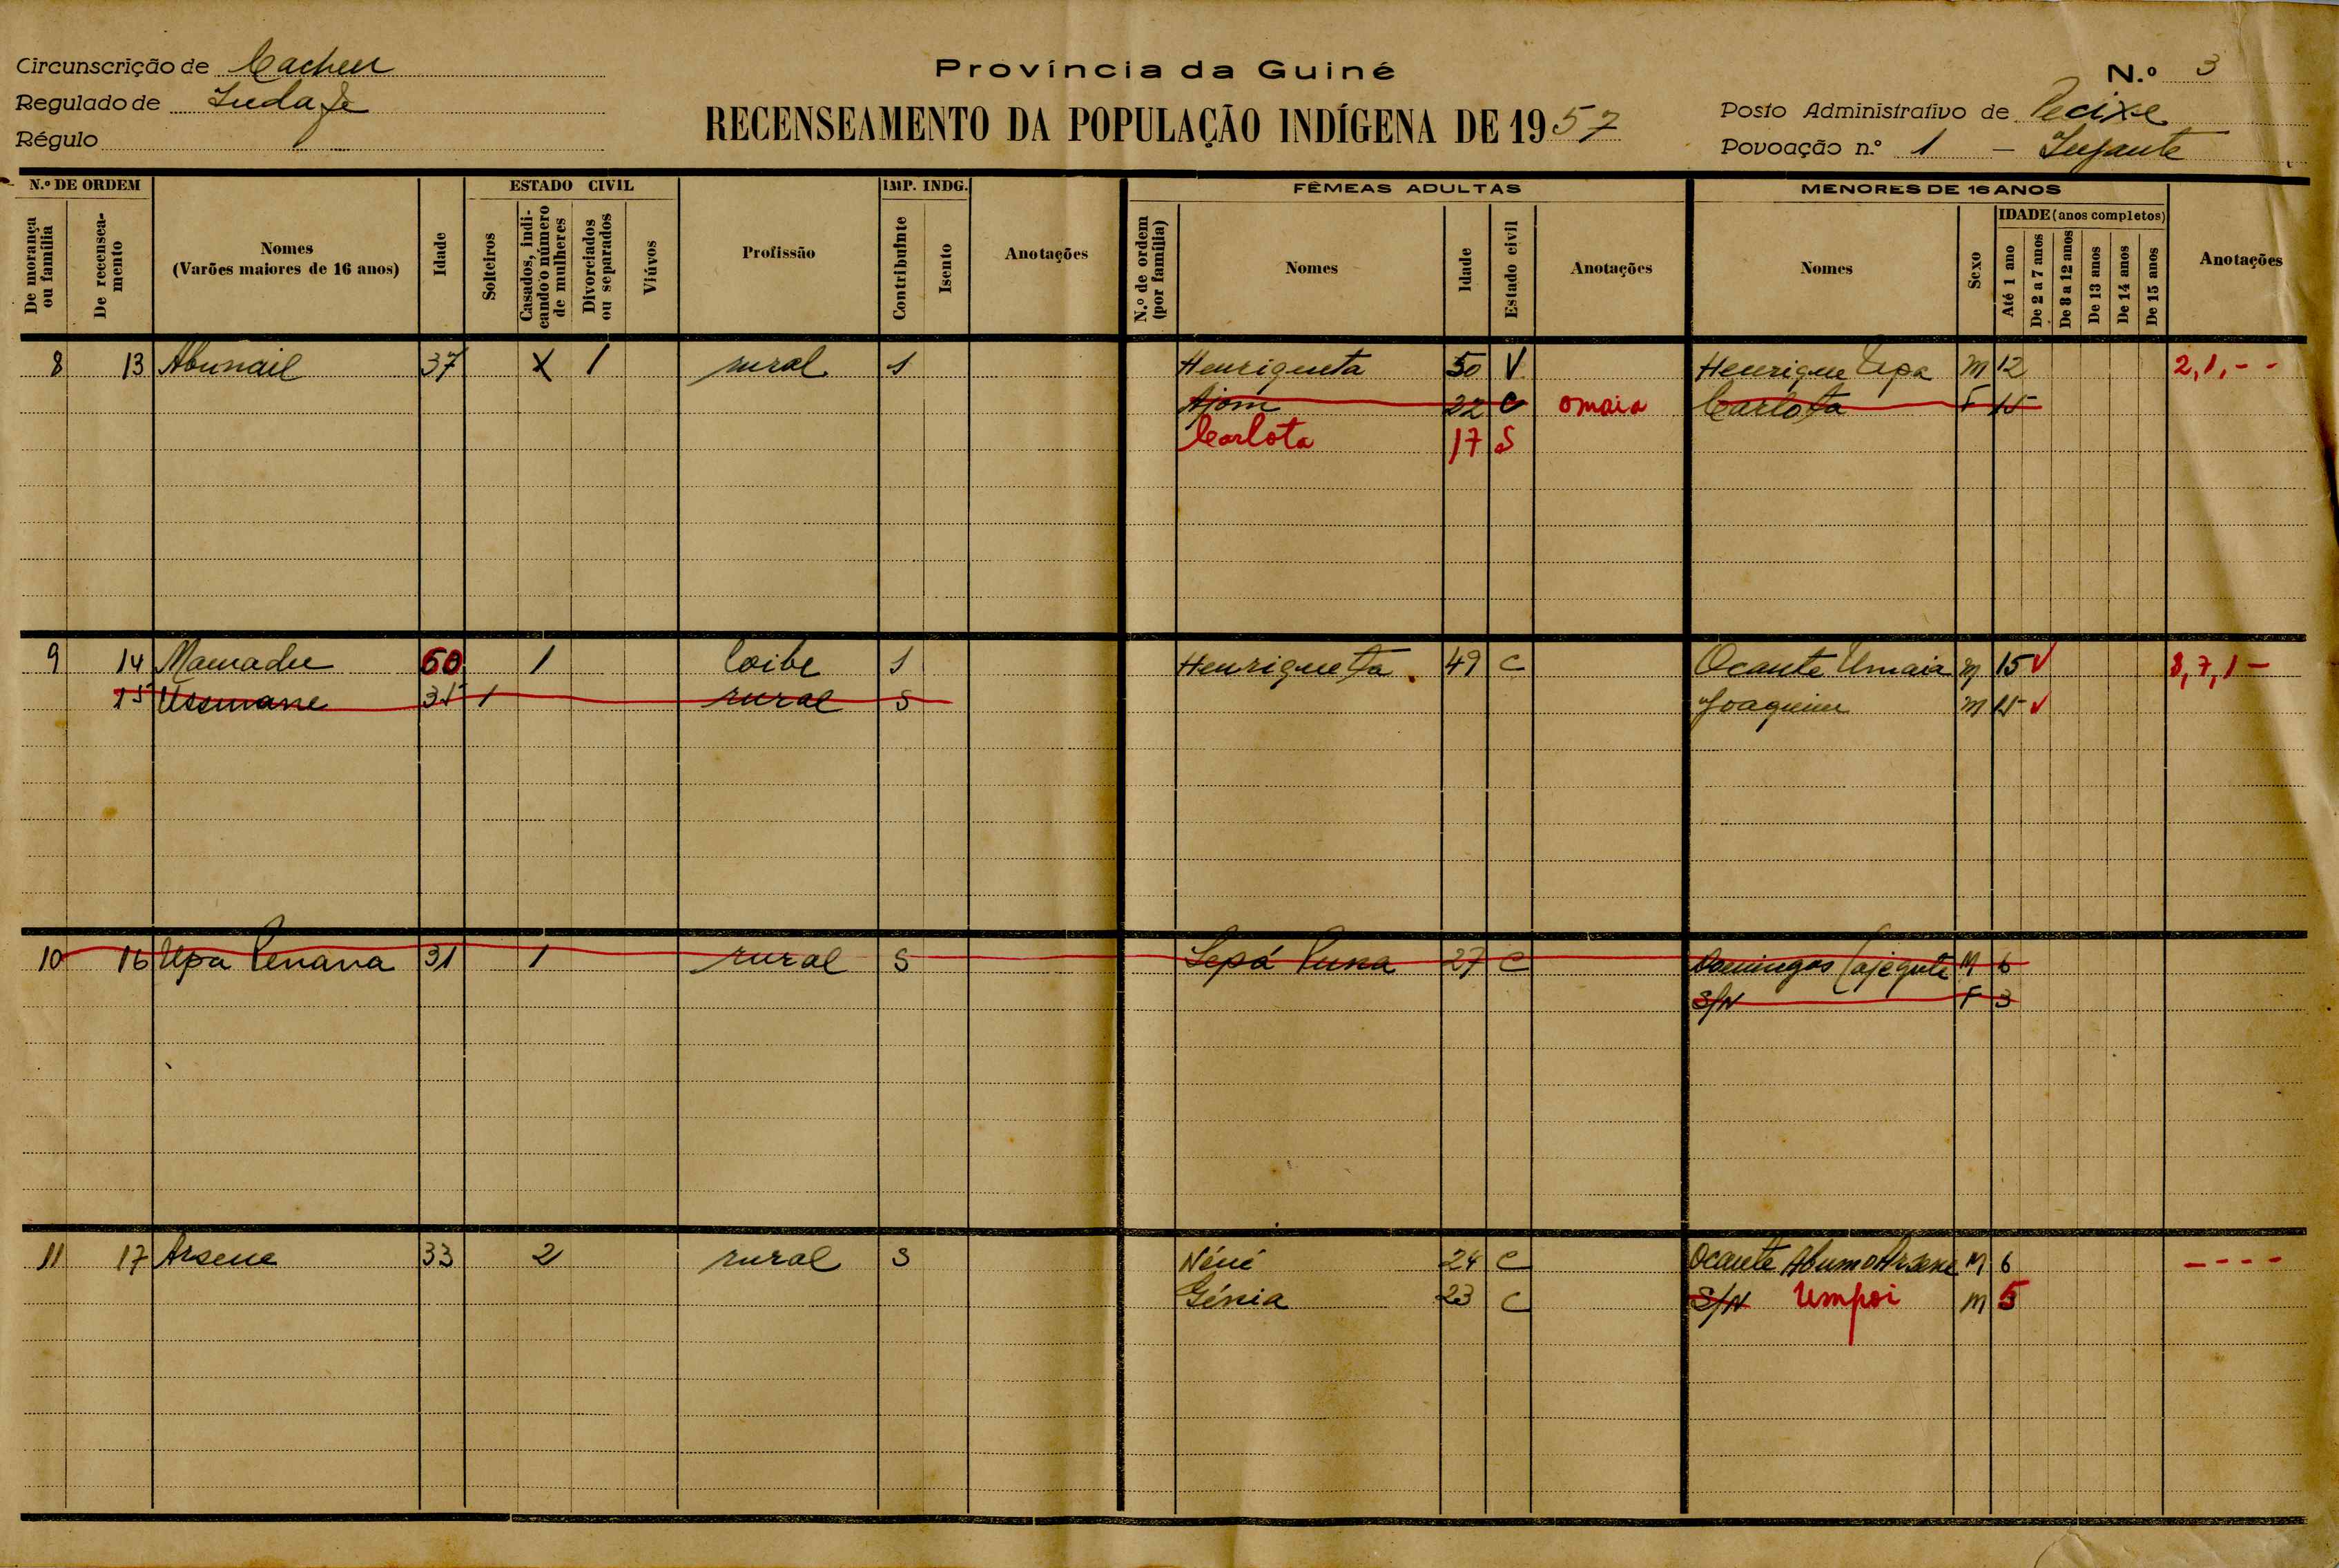 Circunscrição de Cacheu
Província da Guiné
N.º 3
Regulado de
RECENSEAMENTO DA POPULAÇÃO INDÍGENA DE 1957
Posto Administrativo de Pecixe
Régulo
Povoação n.º 1 –
N.º DE ORDEM
ESTADO CIVIL
IMP. INDG.
FÊMEAS ADULTAS
MENORES DE 16 ANOS
IDADE (anos completos)
De morança ou família
De recenseamento
Nomes (Varões maiores de 16 anos)
Idade
Solteiros
Casados, indicando o número de mulheres
Divorciados ou separados
Viúvos
Profissão
Contribuinte
Isento
Anotações
N.º de ordem (por família)
Nomes
Idade
Estado civil
Anotações
Nomes
Sexo
Até 1 ano
De 2 a 7 anos
De 8 a 12 anos
De 13 anos
De 14 anos
De 15 anos
Anotações
8 13 Abunail 37 X 1 rural S Henriqueta 50 V Henrique Upa M 12 2,1,--
Ajom 22 C omaia Carlota F 15
Carlota 17 S
9 14 Mamadu 60 1 S Henriqueta 49 C Ocante Umaia M 15 8,7,1-
15 Ussumane 35 1 rural S Joaquim M 15
10 16 Upa Penana 31 1 rural S 27 C Domingos Cajegute M 6
S/N F 3
11 17 Arsene 33 2 rural S Néné 24 C Ocante Abumo Arsene M 6 ----
Génia 23 C S/N Umpoi M 5